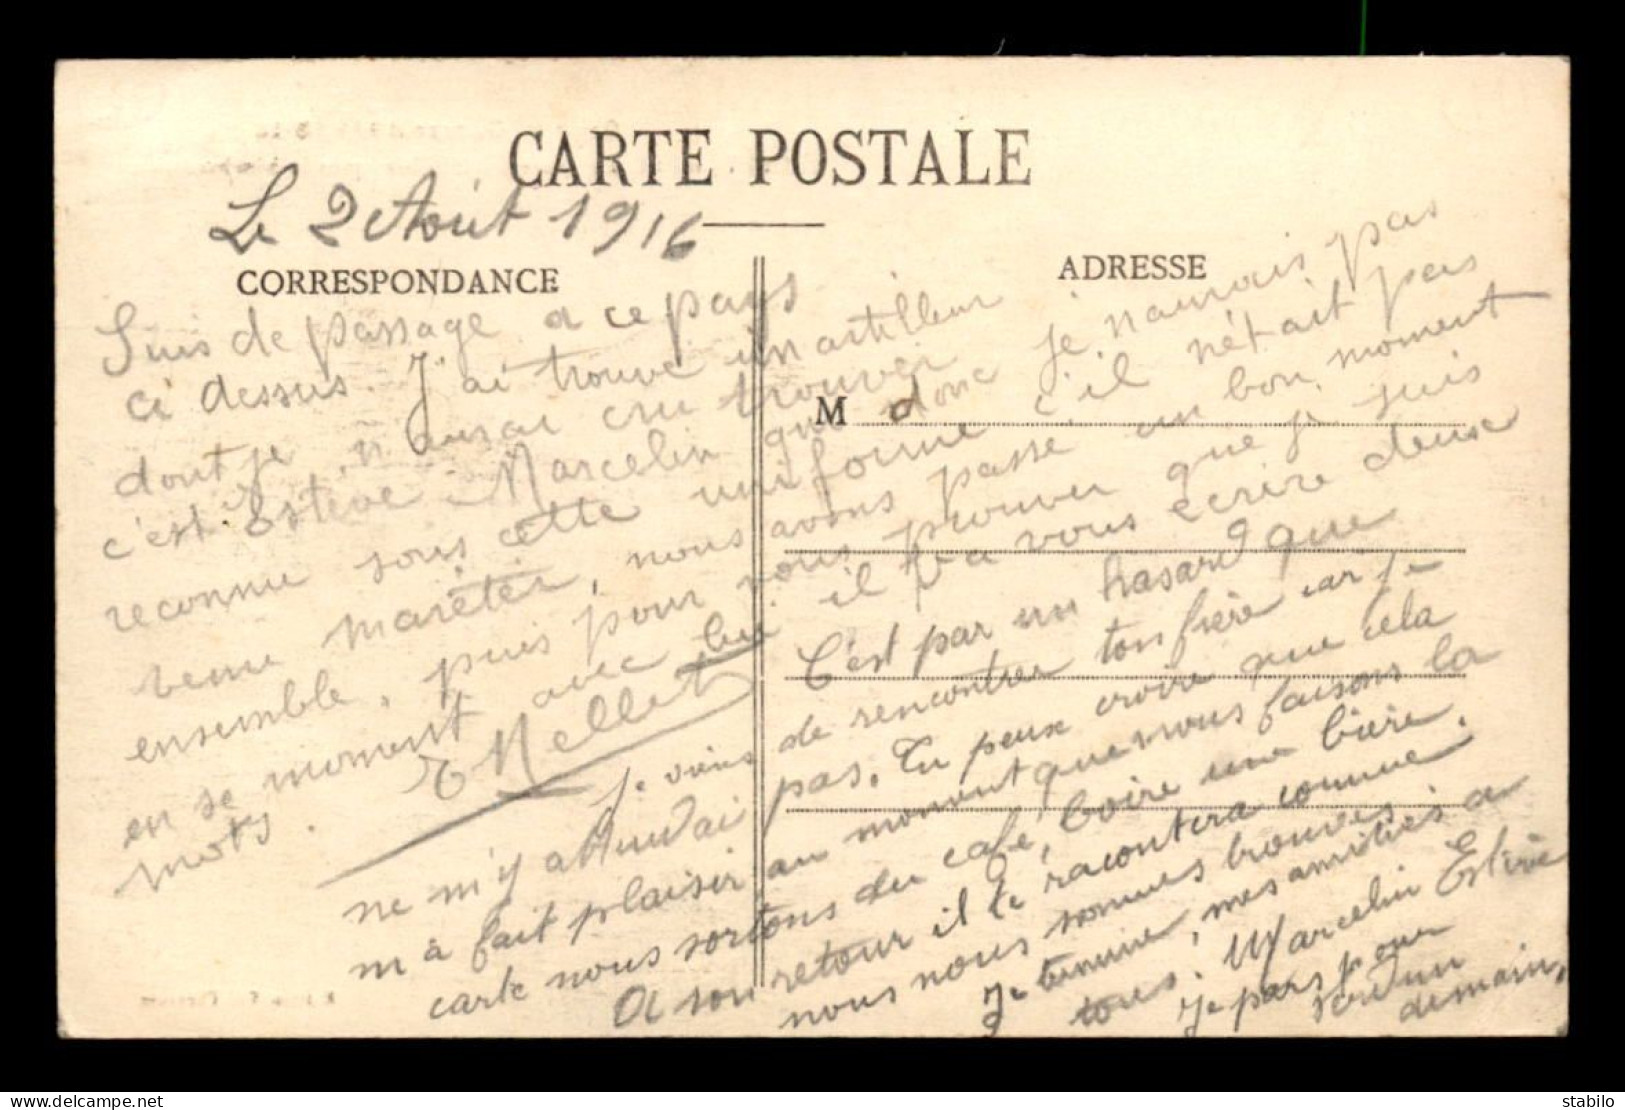 CARTE POSTALE
Le 2 Août 1916
CORRESPONDANCE
ADRESSE
M
Suis de passage a ce pays
ci dessus. J'ai trouvé un artilleur
dont je n'aurai cru trouver
c'est Estève Marcelin que donc je n'aurais pas
reconnu sous cette uniforme c'il n'était pas
venu marêter, nous avons passé un bon moment
ensemble, puis pour vous prouver que je suis
en se moment avec lui il va vous écrire deux
mots.
Mellet
C'est par un hasard que
je viens de rencontrer ton frère car je
ne m'y attendai pas. Tu peux croire que cela
m'à fait plaisir au moment que nous faisons la
carte nous sortons du café, boire une bière.
A son retour il te racontera comme
nous nous sommes trouvés.
Je termine, mes amitiés a
tous. Marcelin Estève
Je pars pour
Verdun
demain.
delcampe.net
stabilo